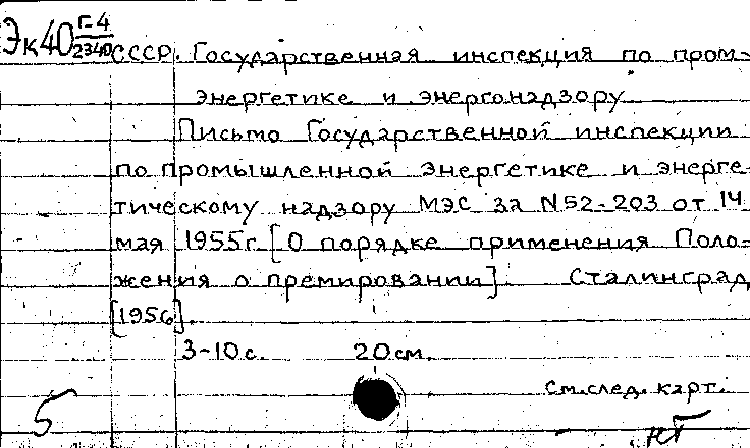 Эк40 Г-4
2340
СССР. Государственная инспекция по пром-
энергетике и энергонадзору
Письмо Государственной инспекции
по промышленной энергетике и энерге-
тическому надзору МЭС за N 52-203 от 14
мая 1955 г. [О порядке применения Поло-
жения о премировании]. Сталинград
[1956].
3-10 с. 20 см.
См. след. карт.
5